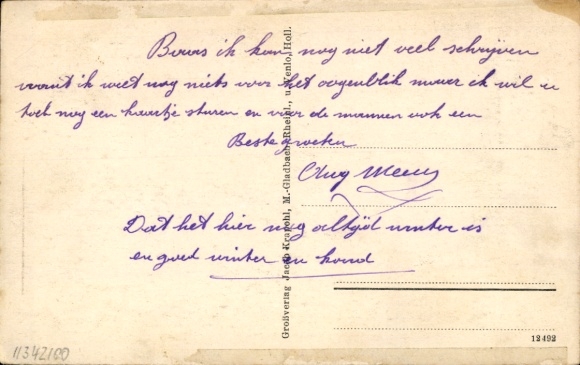 Bovas ik kan nog niet veel schrijven
want ik weet nog niets voor het oogenblik maar ik wil u
toch nog een kaartje sturen en voor de mannen ook een
Beste groeten
Aug Meeus
Dat het hier nog altijd winter is
en goed winter en koud
Großverlag Jacob Krapohl, M.-Gladbach-Rheinl., u. Venlo, Holl.
12492
11342160